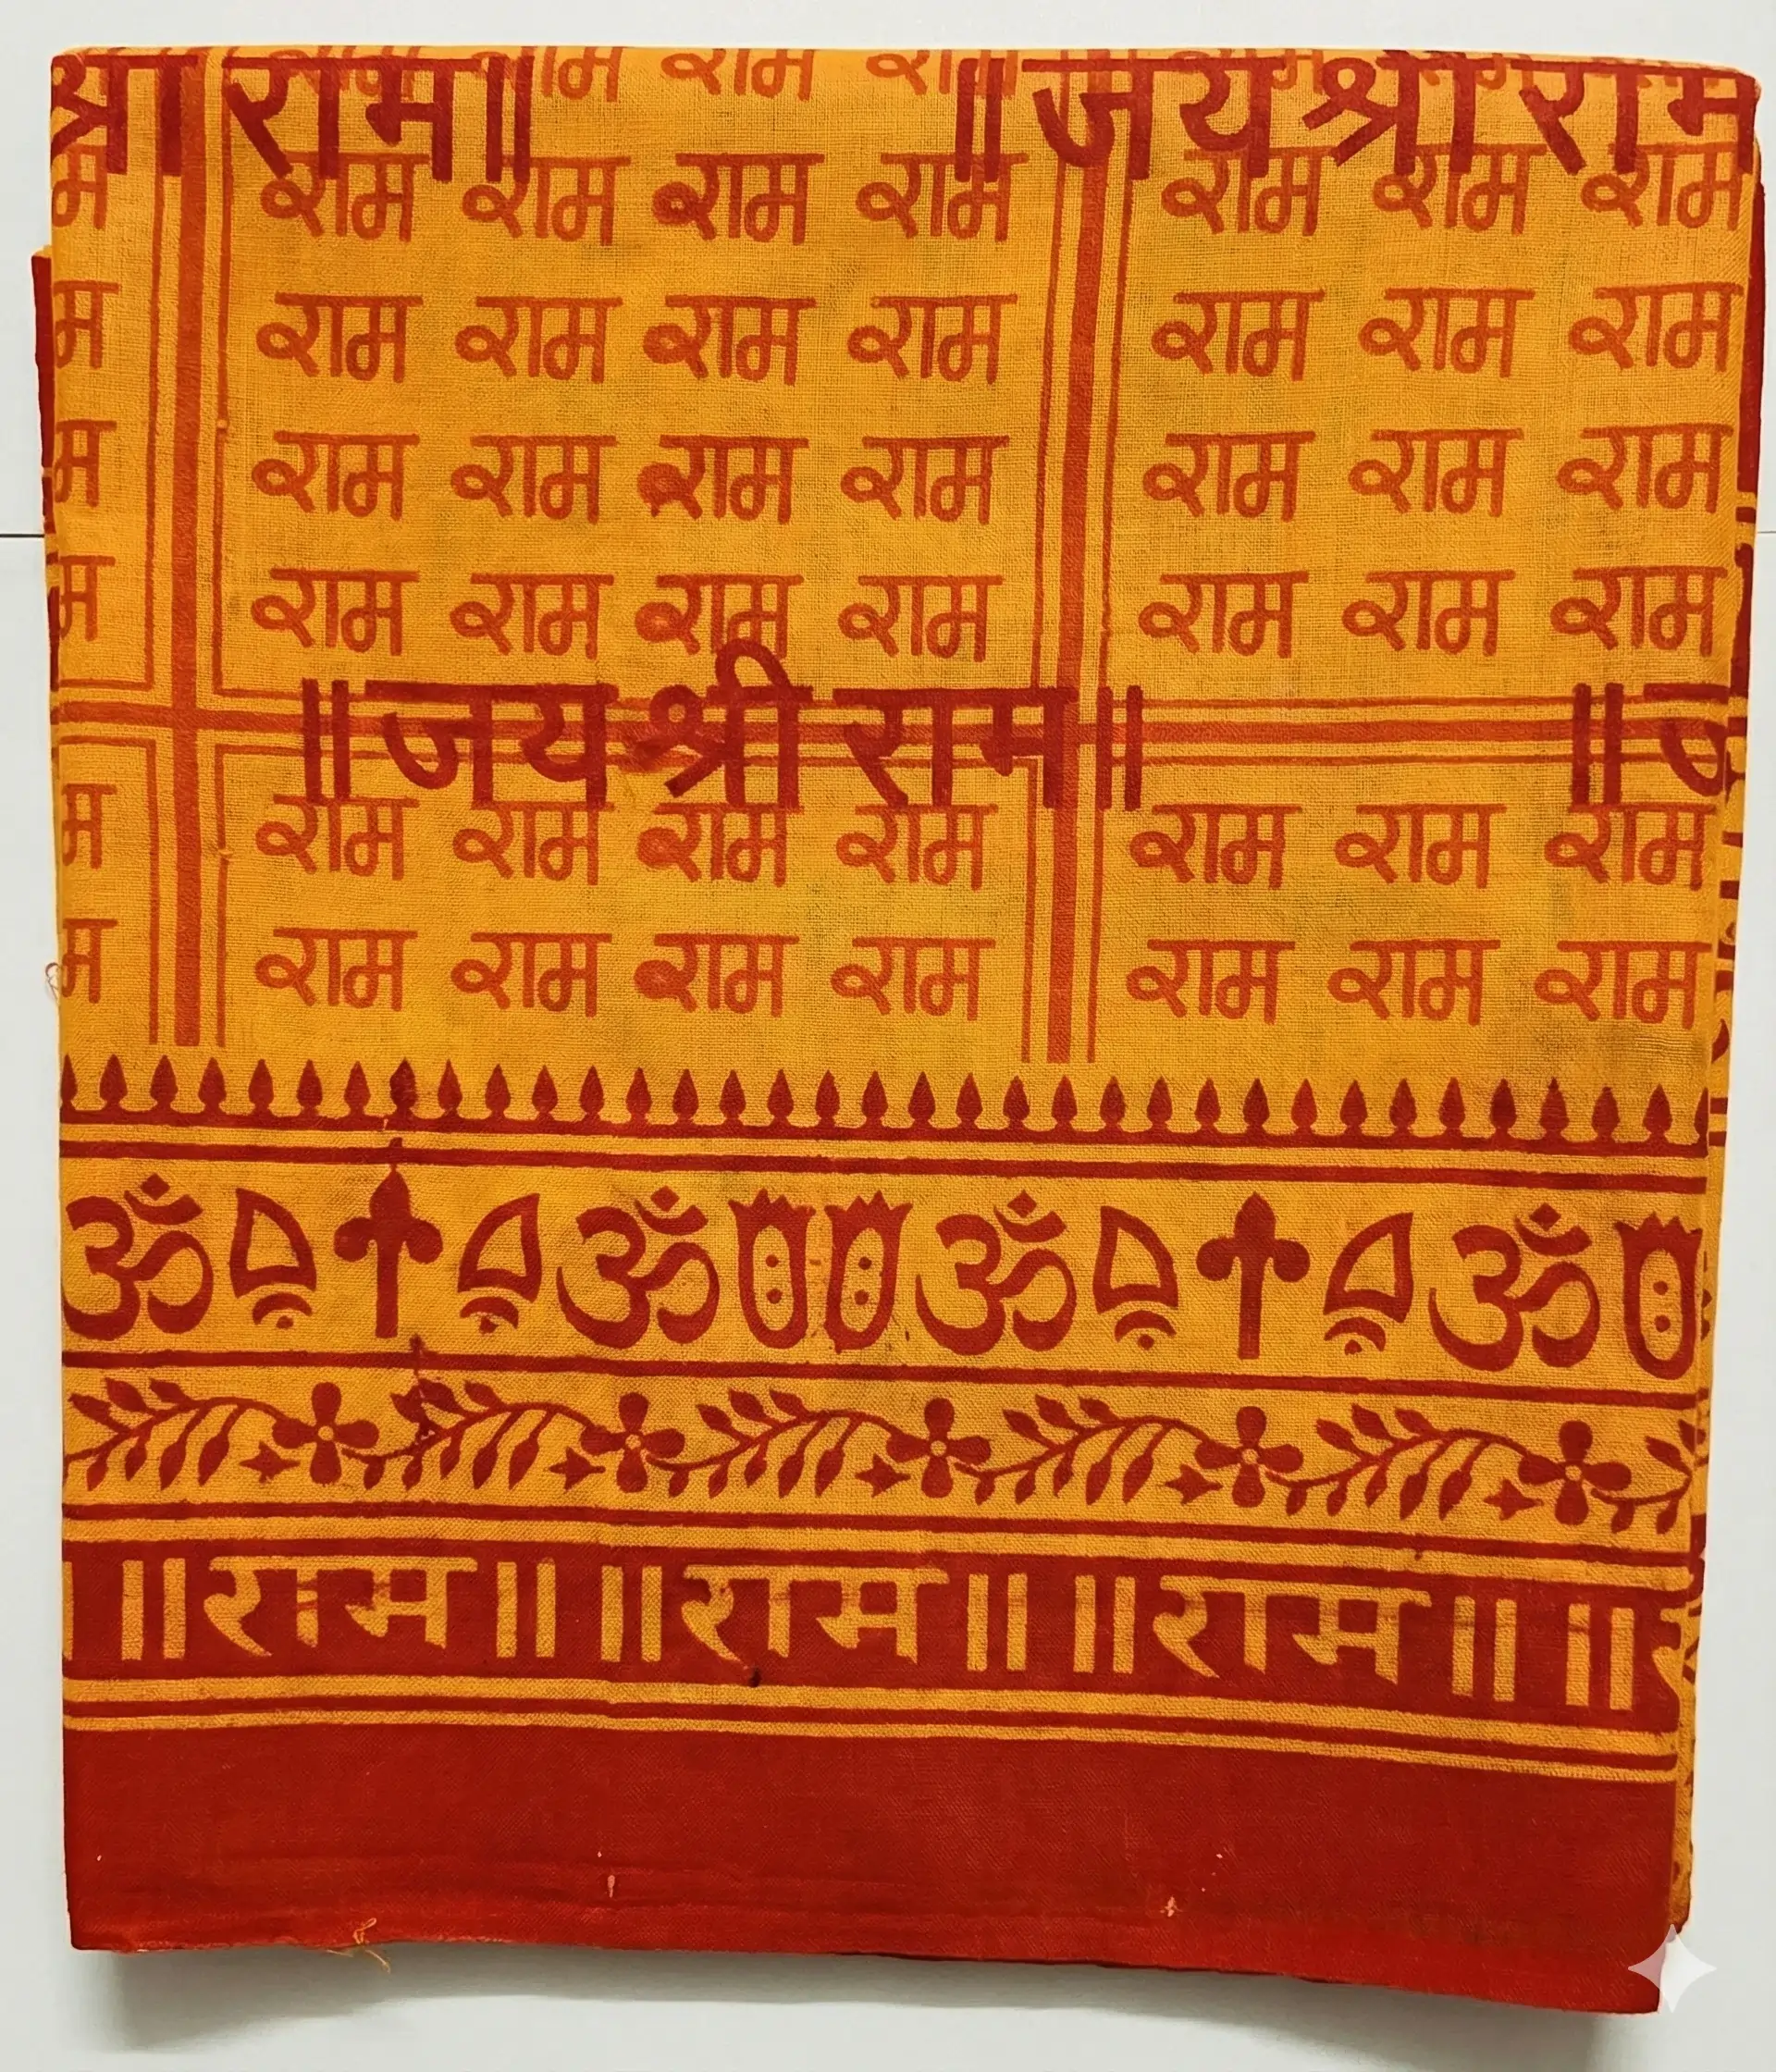 श्री राम॥ ॥जय श्री राम
राम राम राम
म राम राम राम राम राम राम राम
म राम राम राम राम राम राम राम
म राम राम राम राम राम राम राम
म राम राम राम राम राम राम राम
॥जय श्री राम॥ ॥ज
म राम राम राम राम राम राम राम
म राम राम राम राम राम राम राम
ॐ ॐ ॐ ॐ
॥राम॥ ॥राम॥ ॥राम॥ ॥